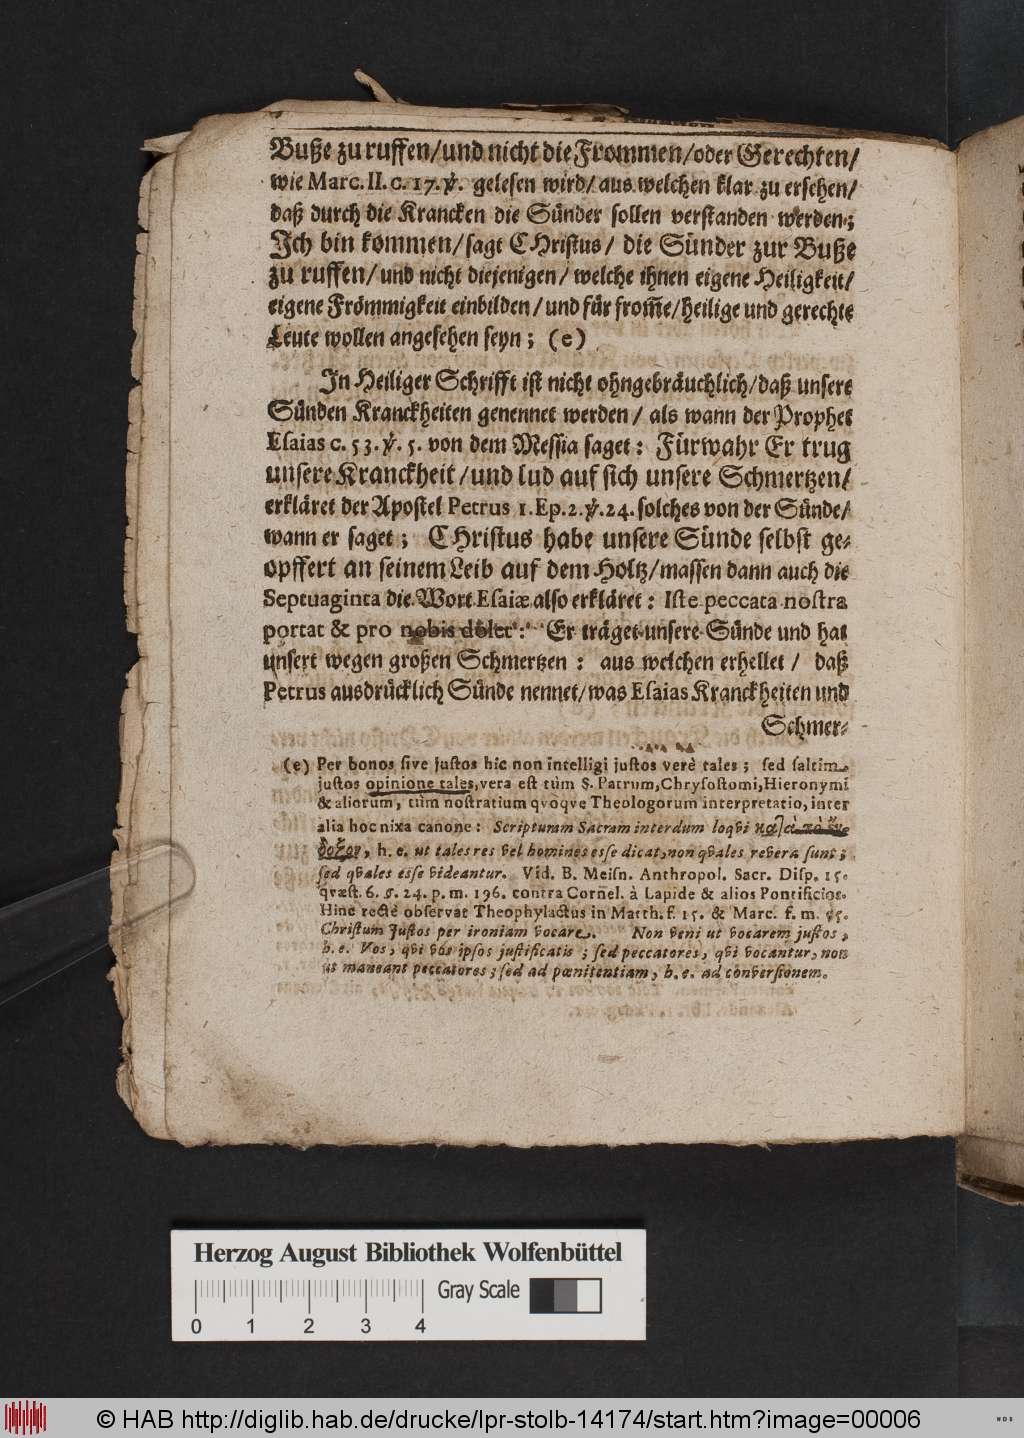 Buße zu ruffen/und nicht die Frommen/oder Gerechten/
wie Marc. II. c. 17. ℣. gelesen wird/ aus welchen klar zu ersehen/
daß durch die Krancken die Sünder sollen verstanden werden;
Ich bin kommen/ sagt CHristus/ die Sünder zur Buße
zu ruffen/ und nicht diejenigen/ welche ihnen eigene Heiligkeit/
eigene Frömmigkeit einbilden/ und für from̃e/ heilige und gerechte
Leute wollen angesehen seyn; (e)
In Heiliger Schrifft ist nicht ohngebräuchlich/ daß unsere
Sünden Kranckheiten genennet werden/ als wann der Prophet
Esaias c. 53. ℣. 5. von dem Messia saget: Fürwahr Er trug
unsere Kranckheit/ und lud auf sich unsere Schmertzen/
erkläret der Apostel Petrus 1. Ep. 2. ℣. 24. solches von der Sünde/
wann er saget; CHristus habe unsere Sünde selbst ge-
opffert an seinem Leib auf dem Holtz/ massen dann auch die
Septuaginta die Wort Esaiæ also erkläret: Iste peccata nostra
portat & pro nobis dolet: Er träget unsere Sünde und hat
unsert wegen großen Schmertzen: aus welchen erhellet/ daß
Petrus ausdrücklich Sünde nennet/ was Esaias Kranckheiten und
Schmer-
(e) Per bonos sive justos hic non intelligi justos verè tales; sed saltim
justos opinione tales, vera est tùm S. Patrum, Chrysostomi, Hieronymi
& aliorum, tùm nostratium qvoqve Theologorum interpretatio, inter
alia hoc nixa canone: Scripturam Sacram interdum loqvi
h. e. ut tales res vel homines esse dicat, non qvales revera sunt;
sed qvales esse videantur. Vid. B. Meisn. Anthropol. Sacr. Disp. 15.
qvæst. 6. §. 24. p. m. 196. contra Cornel. à Lapide & alios Pontificios.
Hinc rectè observat Theophylactus in Matth. f. 15. & Marc. f. m.
Christum Justos per ironiam vocare. Non veni ut vocarem justos,
h. e. Vos, qvi vos ipsos justificatis; sed peccatores, qvi vocantur, non
ut maneant peccatores; sed ad pœnitentiam, h. e. ad conversionem.
Herzog August Bibliothek Wolfenbüttel
Gray Scale
0 1 2 3 4
© HAB http://diglib.hab.de/drucke/lpr-stolb-14174/start.htm?image=00006